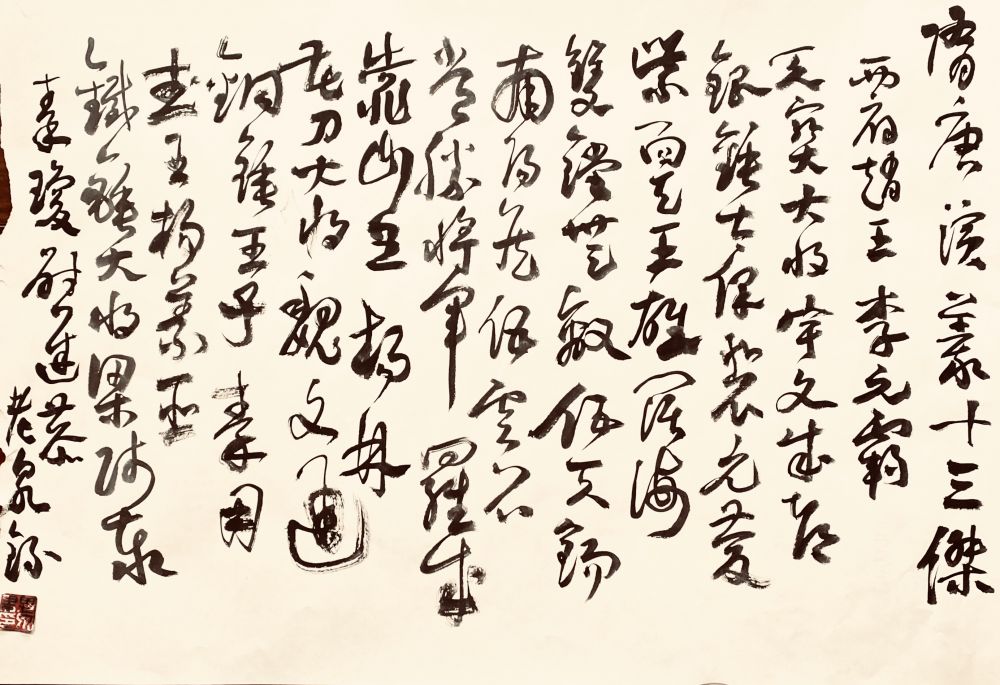 隋唐演義十三傑
西府趙王李元霸
天寶大将宇文成都
銀錘大保裴元慶
紫面天王雄闊海
雙鐙無敵伍天錫
南陽侯伍雲召
常勝将軍羅成
靠山王楊林
花刀大将魏文通
銅錘王子秦用
壽王楊義臣
鐵錘大将梁師泰
秦瓊尉遲恭